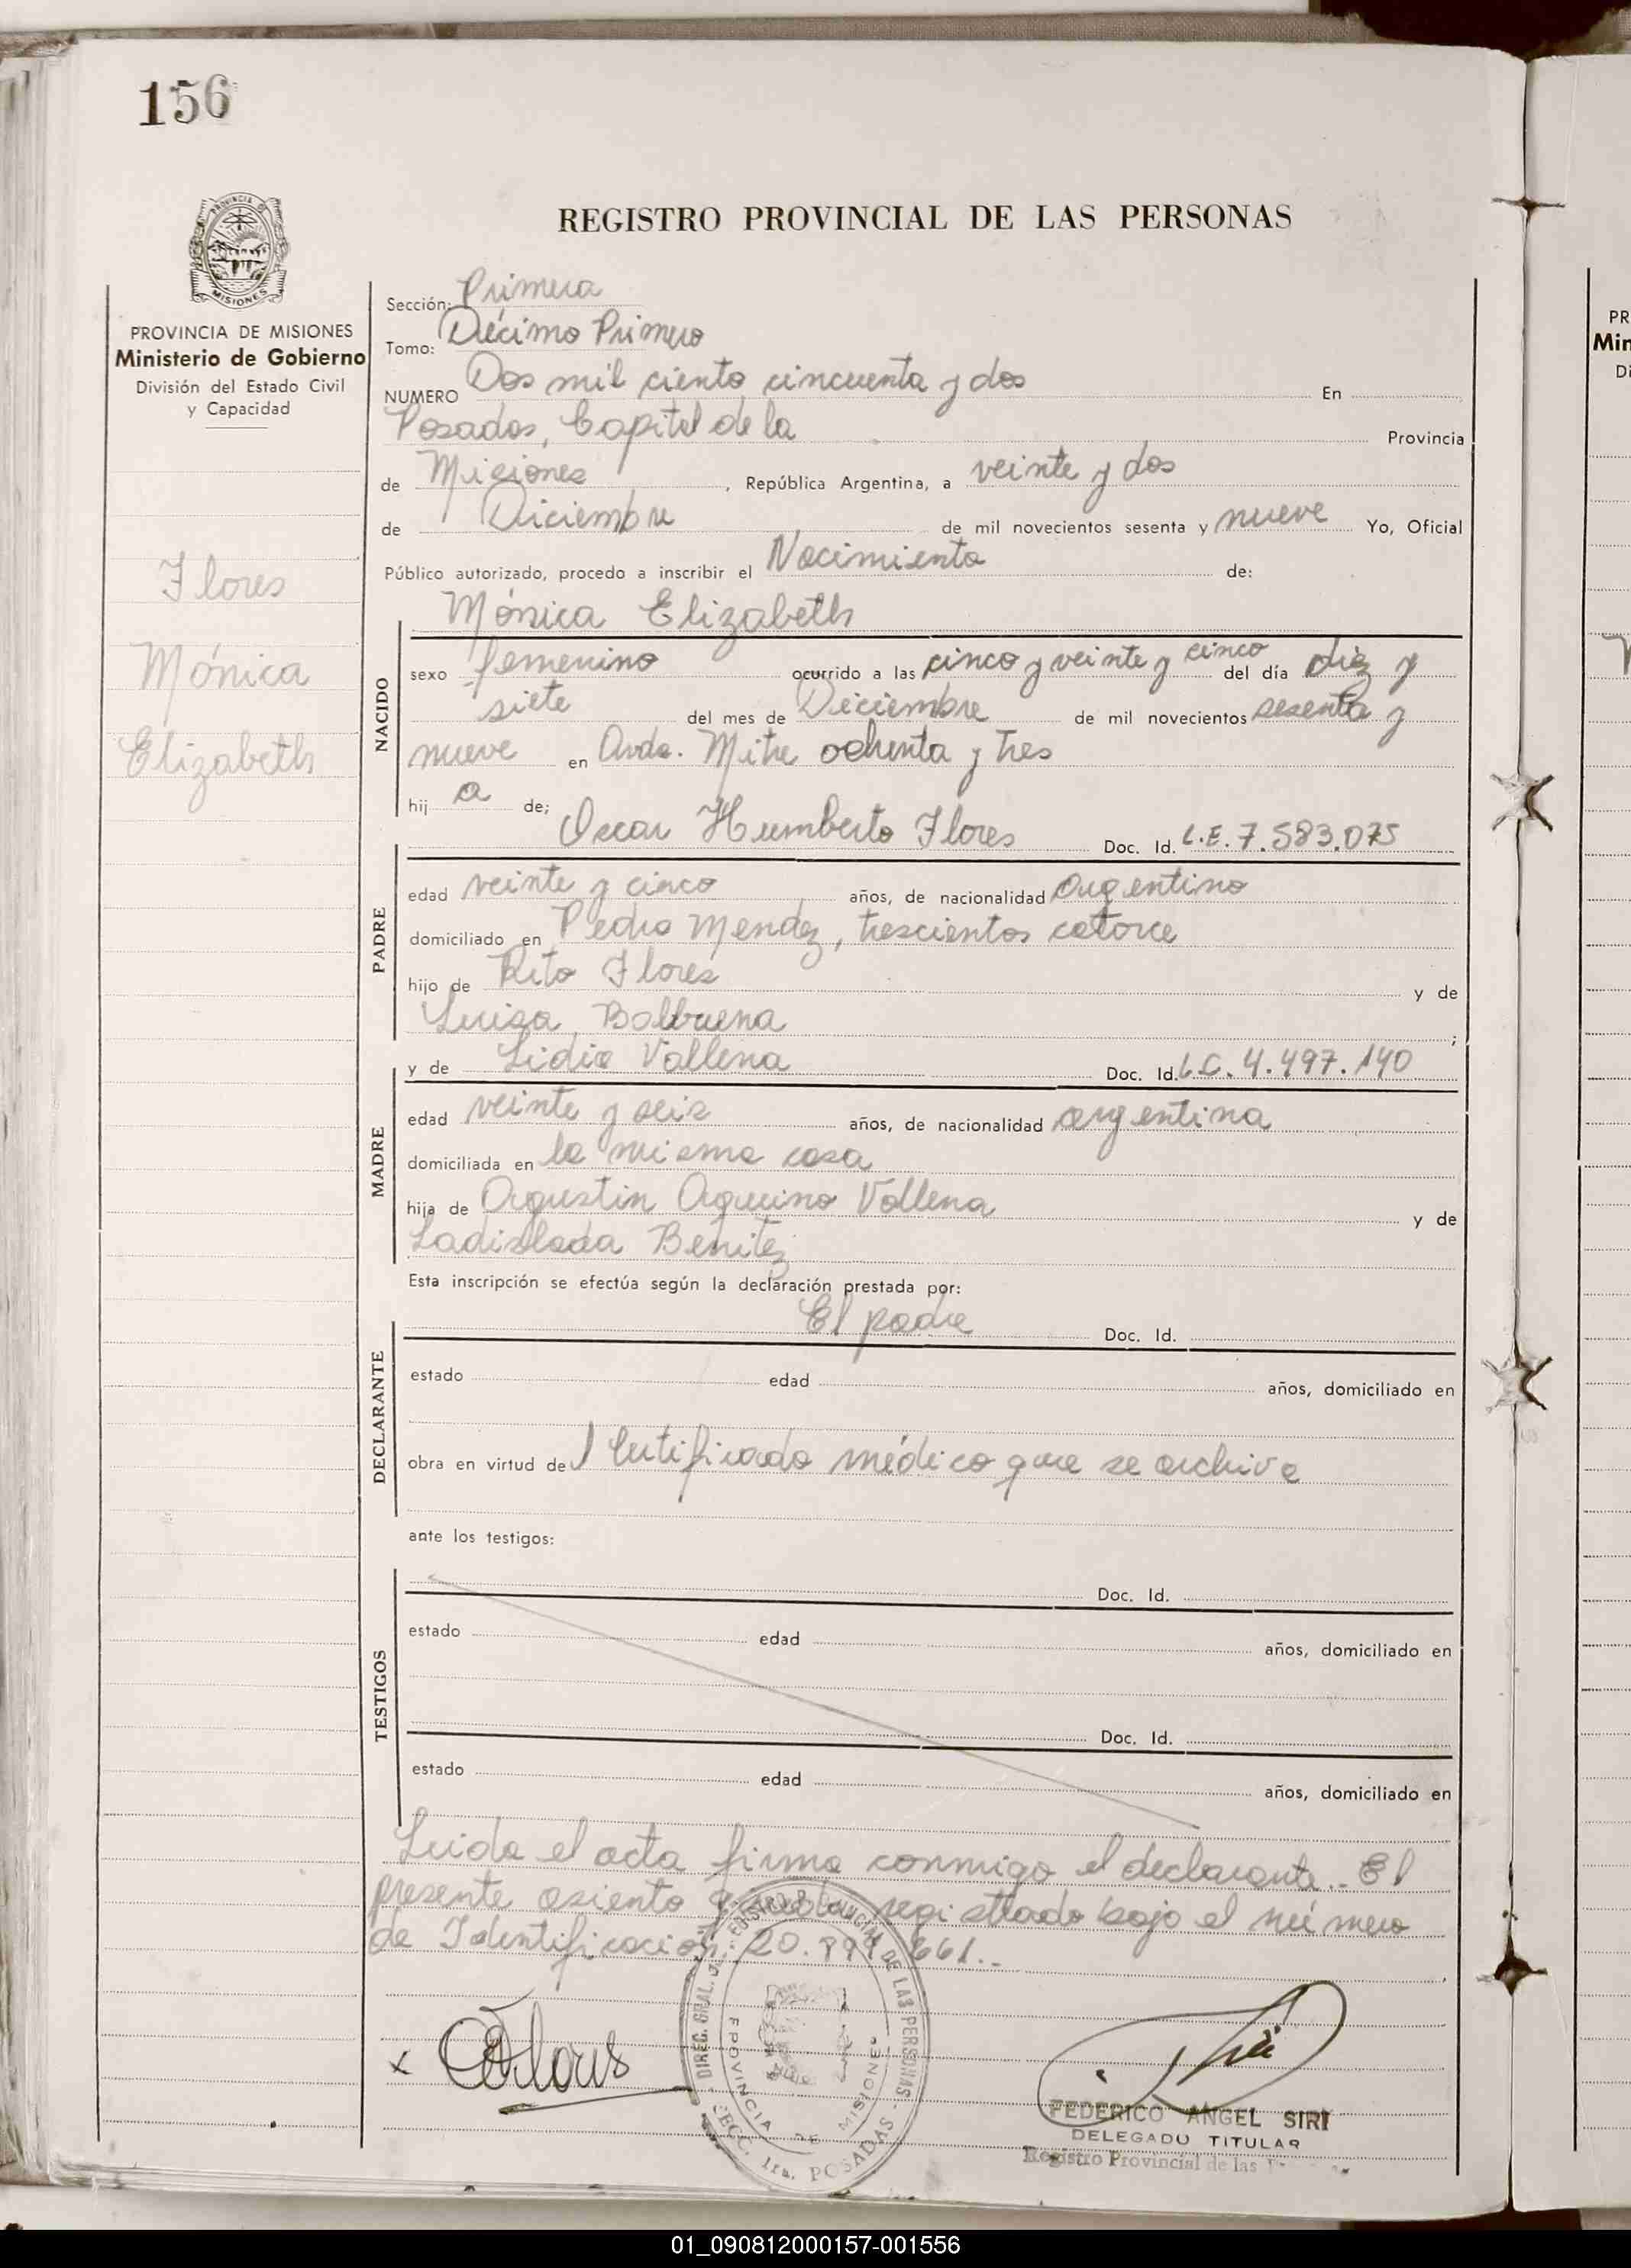 156
REGISTRO PROVINCIAL DE LAS PERSONAS
MISIONES
PROVINCIA DE MISIONES
Ministerio de Gobierno
División del Estado Civil
y Capacidad
Flores
Mónica
Elizabeth
Sección: Primera
Tomo: Décimo Primero
NUMERO Dos mil ciento cincuenta y dos En
Posadas, Capital de la Provincia
de Misiones, República Argentina, a veinte y dos
de Diciembre de mil novecientos sesenta y nueve Yo, Oficial
Público autorizado, procedo a inscribir el Nacimiento de:
Mónica Elizabeth
NACIDO
sexo femenino ocurrido a las cinco y veinte y cinco del día diez y
siete del mes de Diciembre de mil novecientos sesenta y
nueve en Avda. Mitre ochenta y tres
hij a de;
Oscar Humberto Flores Doc. Id. L.E. 7.583.075
PADRE
edad veinte y cinco años, de nacionalidad argentino
domiciliado en Pedro Mendez, trescientos catorce
hijo de Rito Flores y de
Luisa Balbuena ;
y de Lidia Vallena Doc. Id. L.C. 4.497.140
MADRE
edad veinte y seis años, de nacionalidad argentina
domiciliada en la misma casa
hija de Agustin Aquino Vallena y de
Ladislada Benitez
Esta inscripción se efectúa según la declaración prestada por:
El padre Doc. Id.
DECLARANTE
estado edad años, domiciliado en
obra en virtud del Certificado médico que se archiva
ante los testigos:
Doc. Id.
TESTIGOS
estado edad años, domiciliado en
Doc. Id.
estado edad años, domiciliado en
Leida el acta firma conmigo el declarante.. El
presente asiento queda registrado bajo el número
de Identificación 20. 661.-
x Flores
DIREC. GRAL. DE LAS PERSONAS
PROVINCIA DE MISIONES
SECC. 1ra. POSADAS
FEDERICO ANGEL SIRI
DELEGADO TITULAR
Registro Provincial de las
PR
Min
Di
01_090812000157-001556